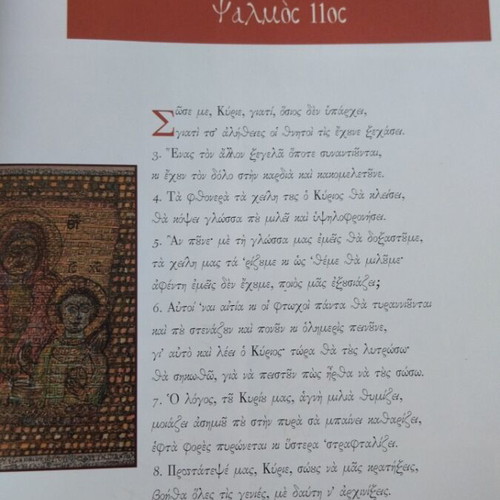 Ψαλμὸς 11ος
Σῶσε με, Κύριε, γιατί, ὅσιος δὲν ὑπάρχει,
γιατὶ τσ' ἀλήθειες οἱ θνητοὶ τὶς ἔχουνε ξεχάσει.
3. Ἕνας τὸν ἄλλον ξεγελᾶ ὅποτε συναντιοῦνται,
κι ἔχουν τὸν δόλο στὴν καρδιὰ καὶ κακομελετοῦνε.
4. Τὰ φθονερὰ τὰ χείλη τους ὁ Κύριος θὰ κλείσει,
θὰ κόψει γλώσσα ποὺ μιλεῖ καὶ ὑψηλοφρονήσει.
5. Ἂν ποῦνε· μὲ τὴ γλῶσσα μας ἐμεῖς θὰ δοξαστοῦμε,
τὰ χείλη μας τὰ 'ρίζουμε κι ὡς 'θέμε θὰ μιλοῦμε·
ἀφέντη ἐμεῖς δὲν ἔχουμε, ποιὸς μᾶς ἐξουσιάζει;
6. Αὐτοί 'ναι αἰτία κι οἱ φτωχοὶ πάντα θὰ τυραννιοῦνται
καὶ ποὺ στενάζουν καὶ πονοῦν κι ὁλημερὶς πεινοῦνε,
γι' αὐτὸ καὶ λέει ὁ Κύριος· τώρα θὰ τοὺς λυτρώσω·
θὰ σηκωθῶ, γιὰ νὰ πειστοῦν πὼς ἦρθα νὰ τοὺς σώσω.
7. Ὁ λόγος, τοῦ Κυρίου μας, ἁγνὴ μιλιὰ θυμίζει,
μοιάζει ἀσημιοῦ ποὺ στὴν πυρὰ σὰ μπαίνει καθαρίζει,
ἑφτὰ φορὲς πυρώνεται κι ὕστερα 'στραφταλίζει.
8. Προστάτεψέ μας, Κύριε, σώους νὰ μᾶς κρατήξεις,
βοήθα ὅλες τὶς γενιές, μὲ δαύτη ν' ἀρχινίξεις.